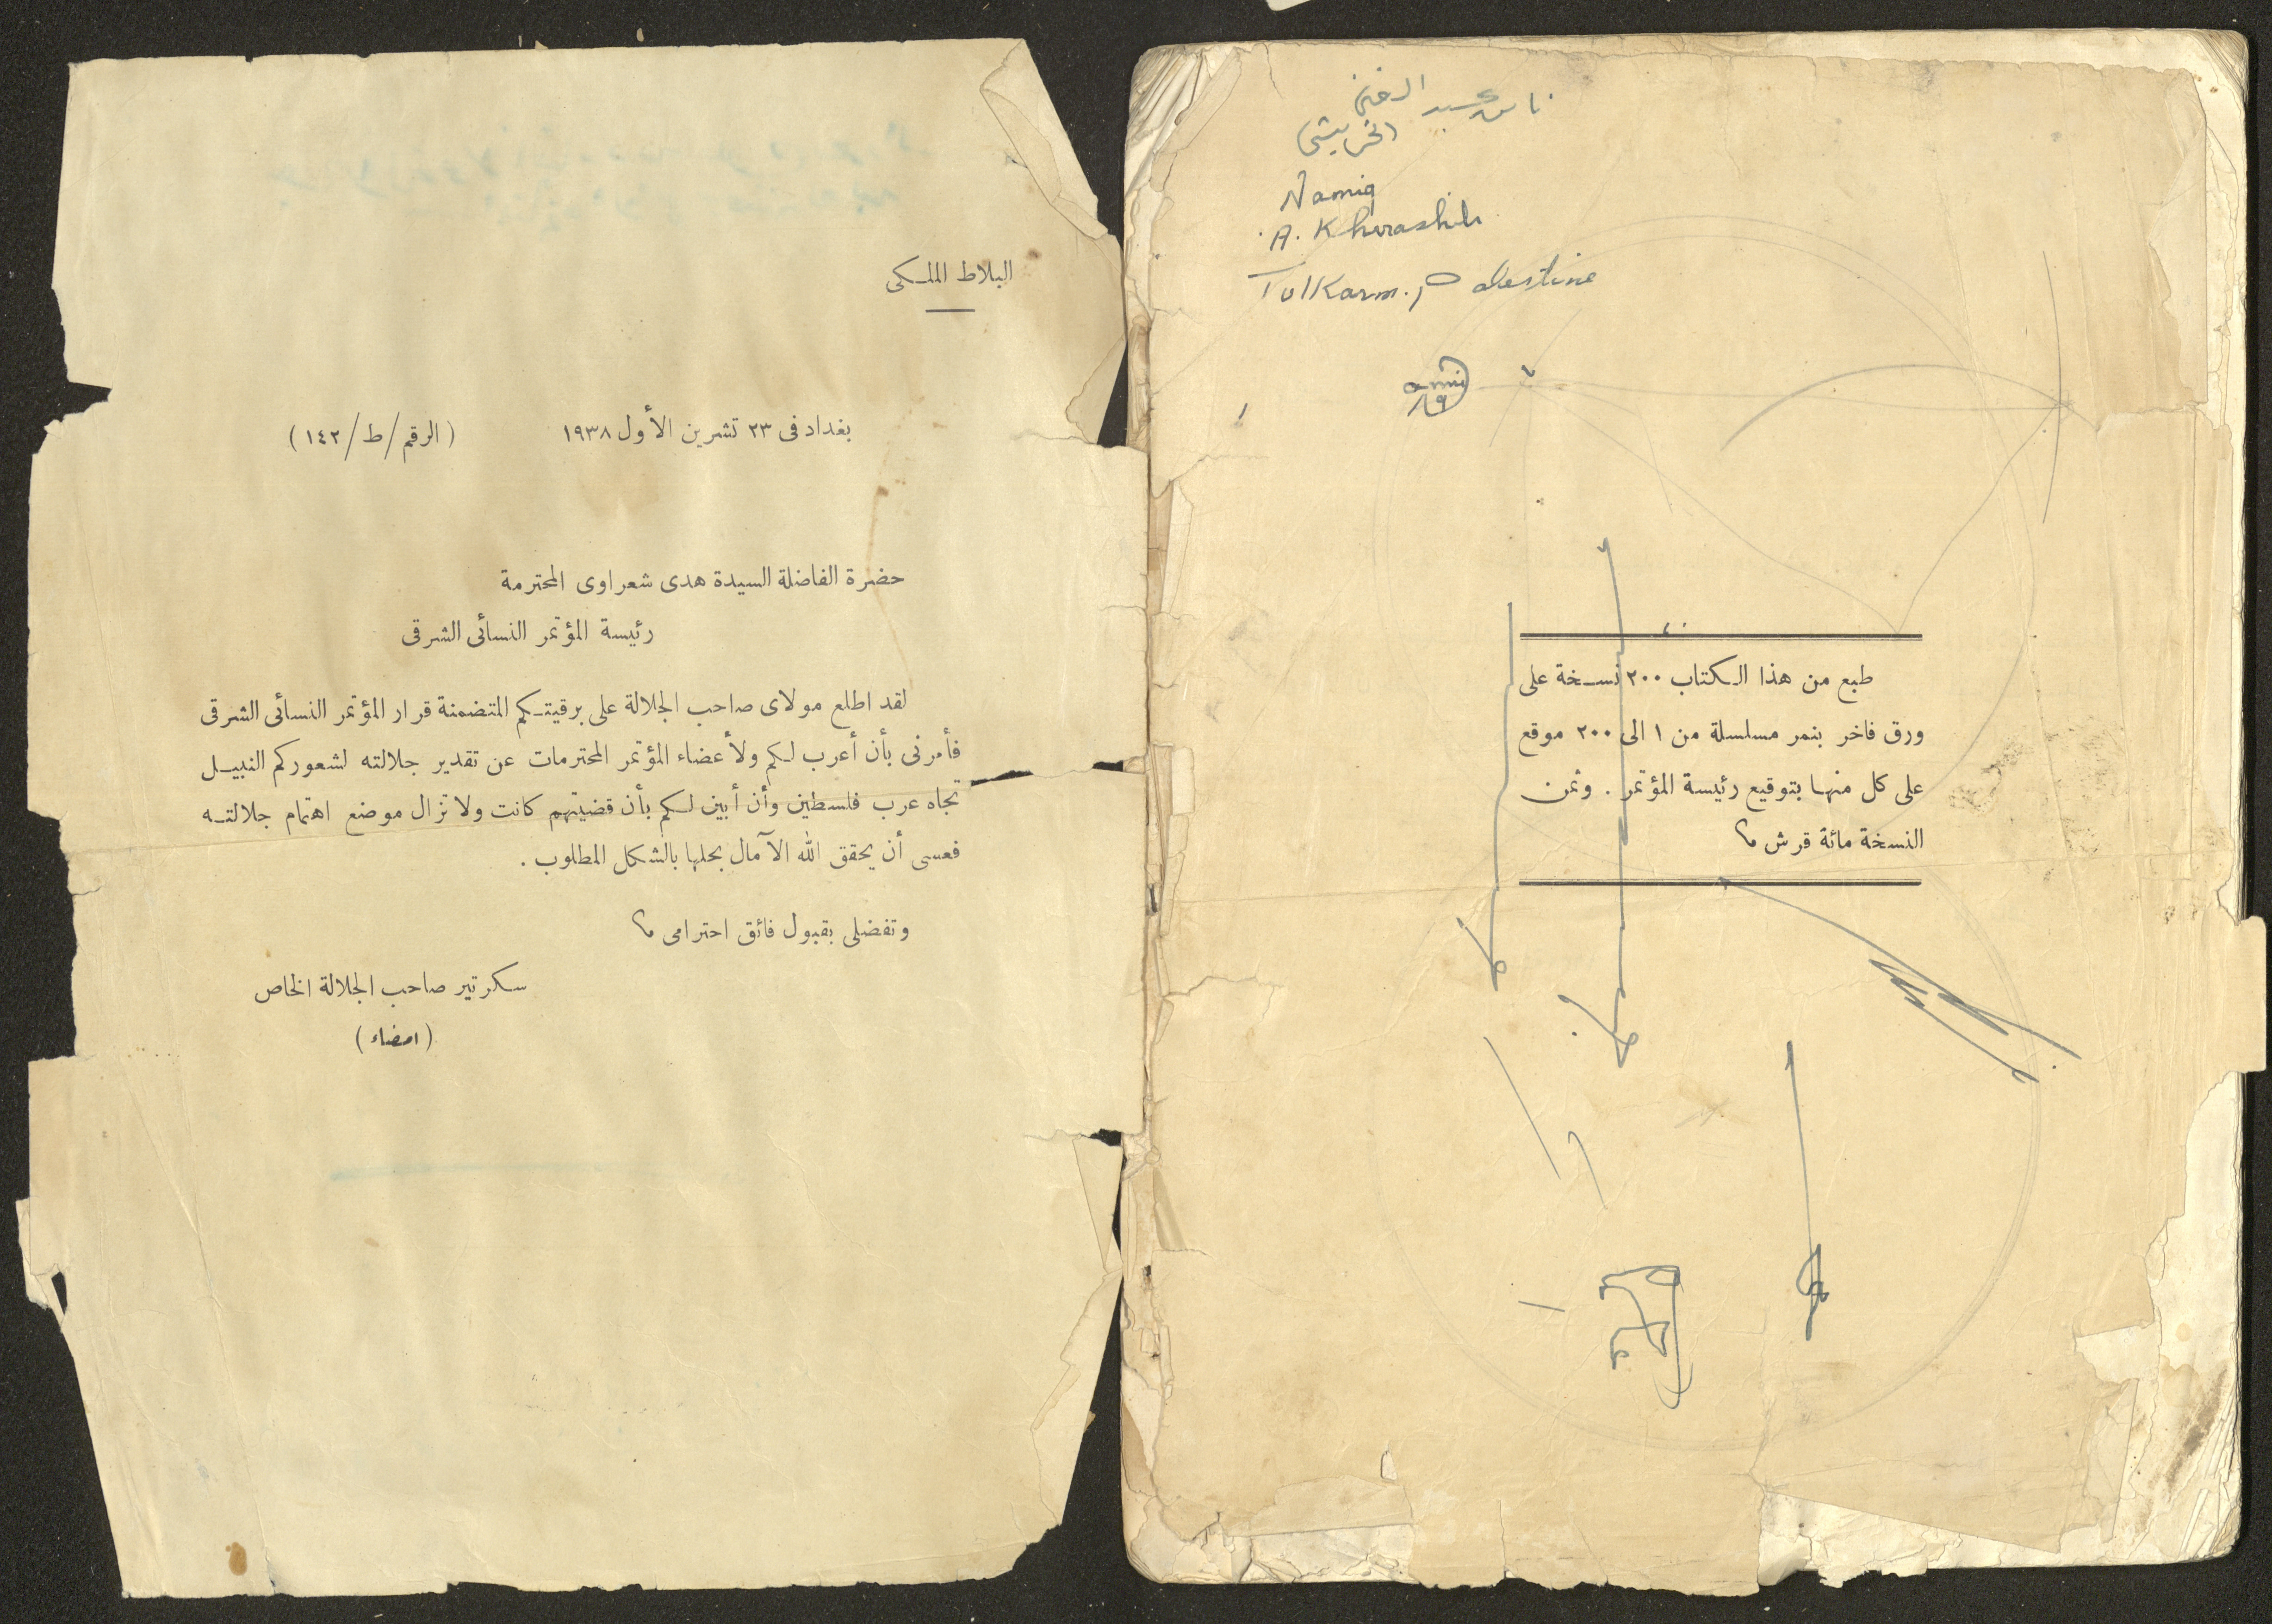 البلاط الملكى
بغداد فى ٢٣ تشرين الأول ١٩٣٨ (الرقم/ط/١٤٢)
حضرة الفاضلة السيدة هدى شعراوى المحترمة
رئيسة المؤتمر النسائى الشرقى
لقد اطلع مولاى صاحب الجلالة على برقيتكم المتضمنة قرار المؤتمر النسائى الشرقى
فأمرنى بأن أعرب لكم ولأعضاء المؤتمر المحترمات عن تقدير جلالته لشعوركم النبيل
تجاه عرب فلسطين وأن أبين لكم بأن قضيتهم كانت ولا تزال موضع اهتمام جلالته
فعسى أن يحقق الله الآمال بحلها بالشكل المطلوب .
وتفضلى بقبول فائق احترامى
سكرتير صاحب الجلالة الخاص
(امضاء)
عبد الغنى
الخريشى
Namiq
A. Khurashih
Tulkarm. Palestine
طبع من هذا الكتاب ٢٠٠ نسخة على
ورق فاخر بنمر مسلسلة من ١ الى ٢٠٠ موقع
على كل منها بتوقيع رئيسة المؤتمر . وثمن
النسخة مائة قرش